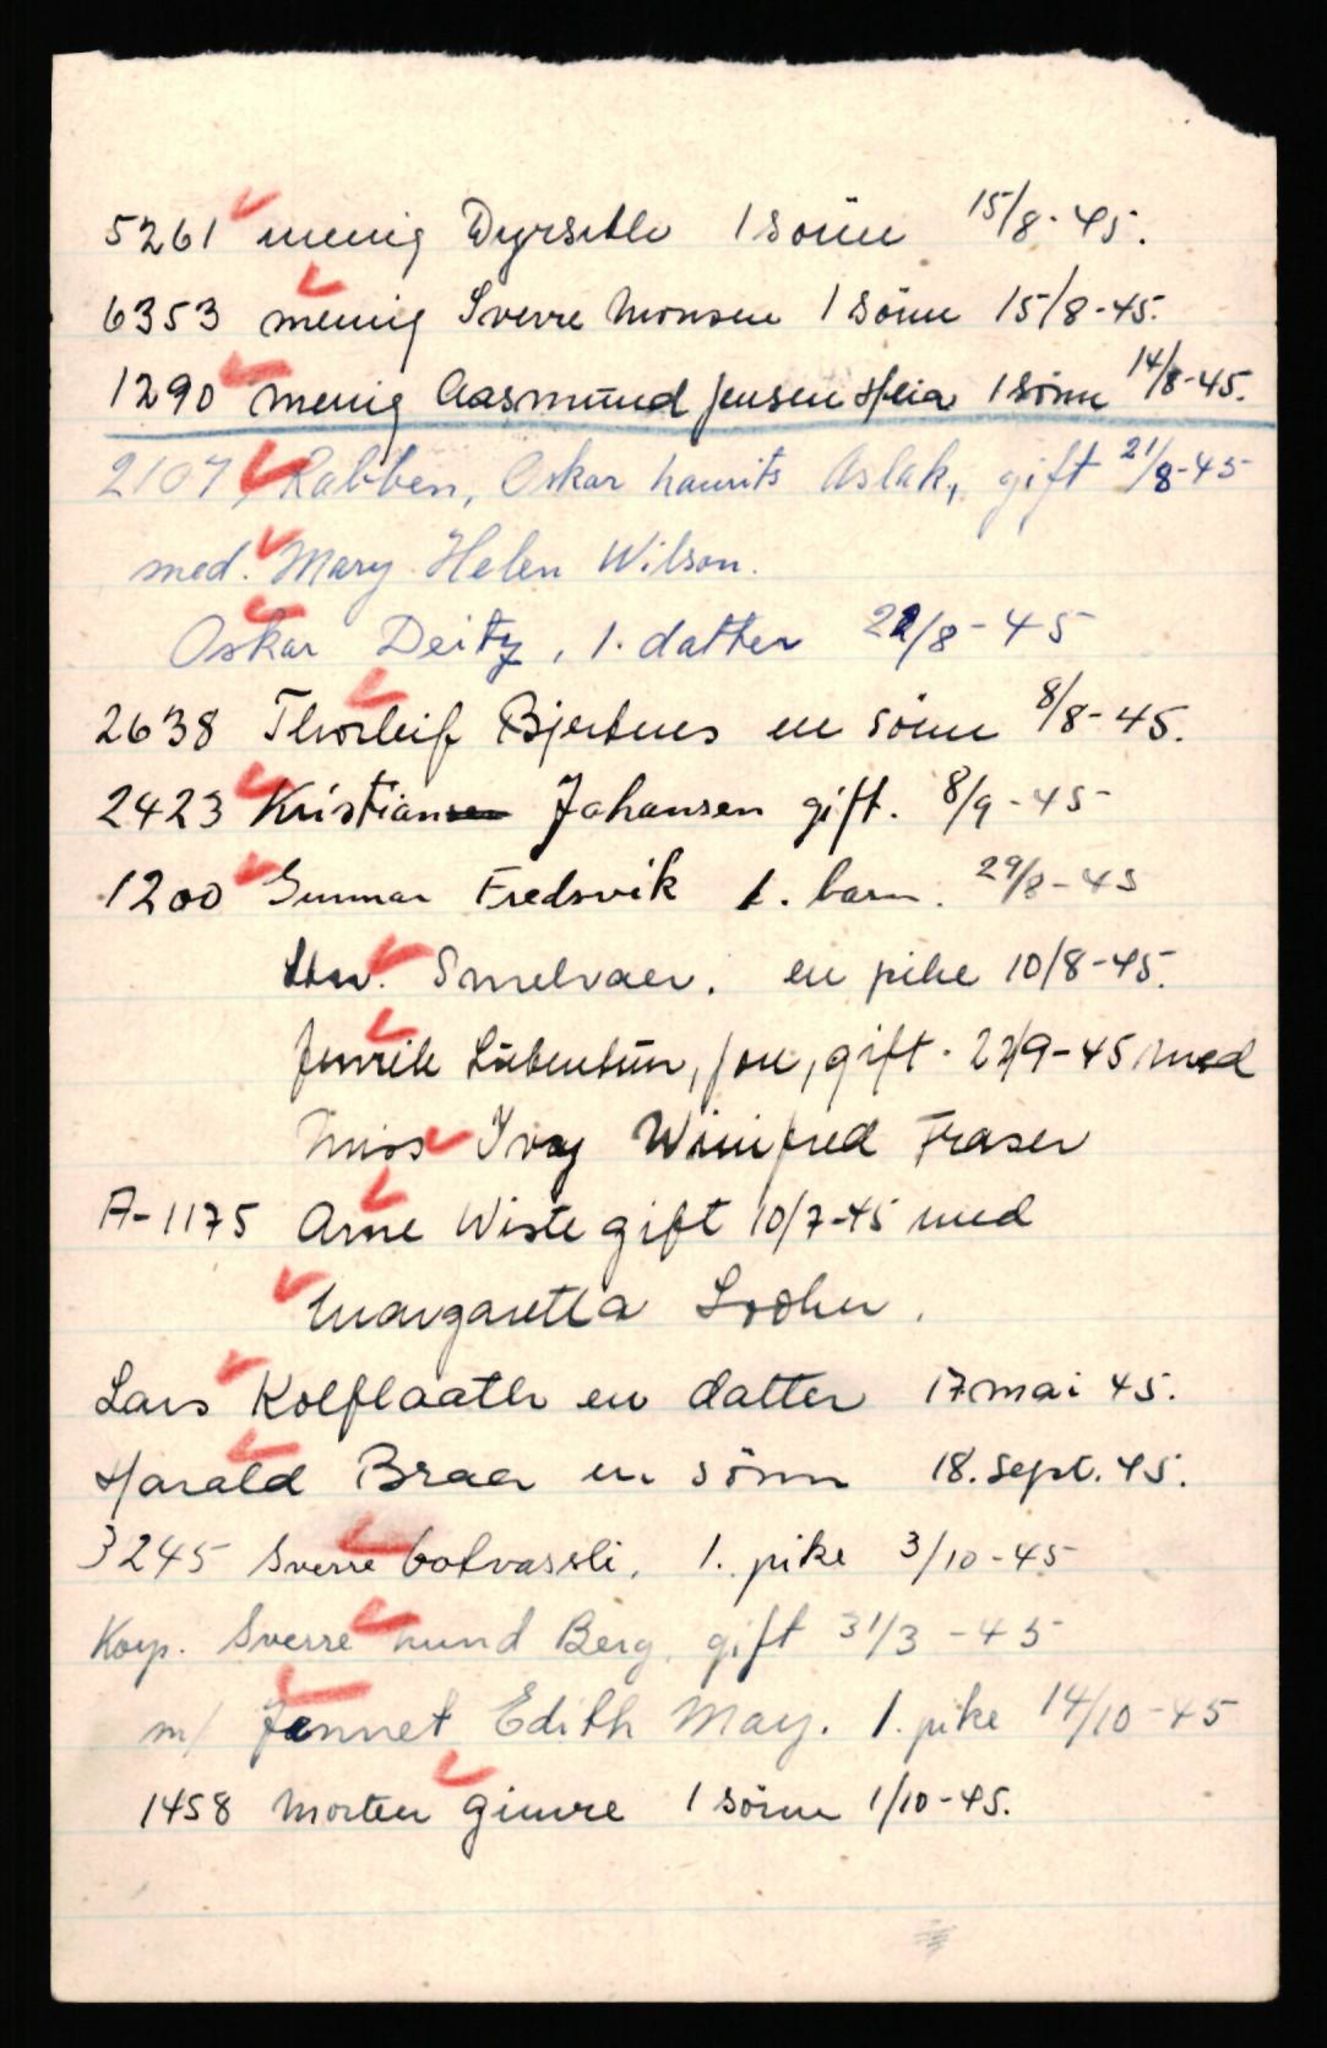 5261 menig Dyrseth 1 sönn 15/8-45.
6353 menig Sverre Monsen 1 sönn 15/8-45.
1290 menig Aasmund Jensen Heia 1 sönn 14/8-45.
2107, Rabben, Oskar Laurits Aslak, gift 21/8-45
med. Mary Helen Wilson.
Oskar Deitz, 1. datter 22/8-45
2638 Thorleif Bjertnes en sönn 8/8-45.
2423 Kristian Johansen gift. 8/9-45
1200 Gunnar Fredsvik 1. barn. 29/8-45
Smelvaer. en pike 10/8-45.
gift. 22/9-45 med
Miss Ivy Winifred Fraser
A-1175 Arne Wiste gift 10/7-45 med
Margaretta
Lars Kolflaath en datter 17. mai 45.
Harald Braa en sönn 18. sept. 45.
3245 Sverre 1. pike 3/10-45
Korp. Sverre Lund Berg, gift 31/3-45
m/ Jennet Edith May. 1. pike 14/10-45
1458 Morten Gimre 1 sönn 1/10-45.